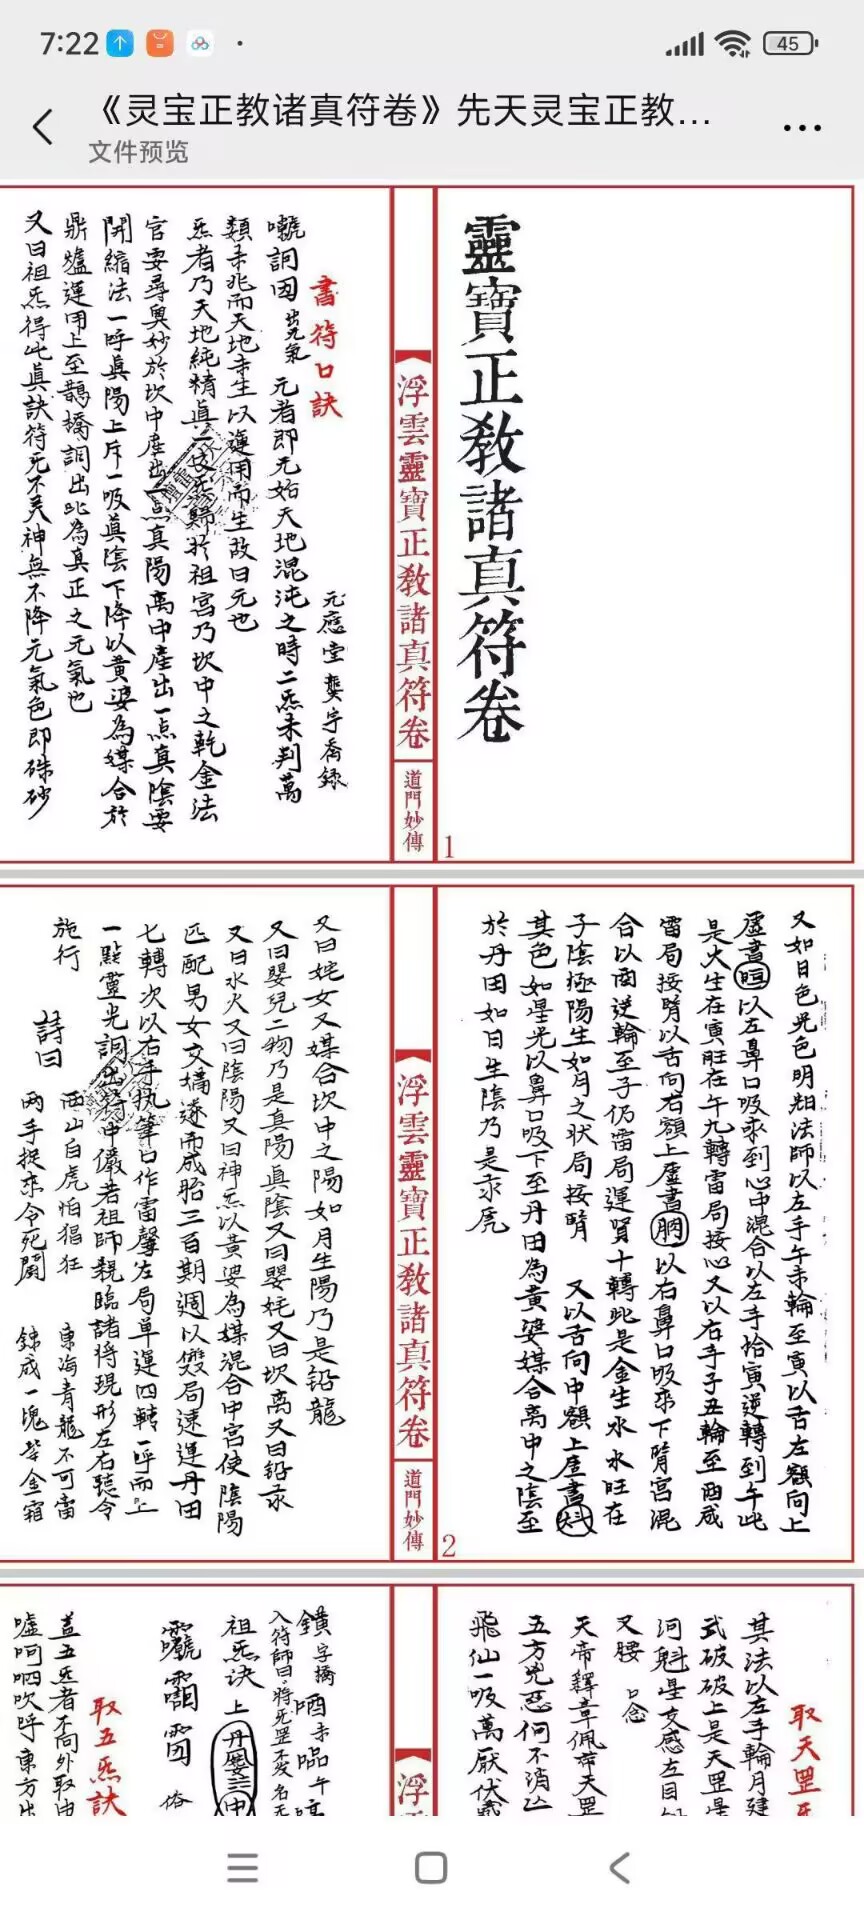 7:22
45
《灵宝正教诸真符卷》先天灵宝正教...
文件预览
靈寶正教諸真符卷
浮雲靈寶正教諸真符卷
道門妙傳
1
書符口訣
元應堂 龔宇喬錄
元者即元始天地混沌之時二炁未判萬
類未兆而天地未生以運用而生故曰元也
炁者乃天地純精真一炁歸於祖宮乃坎中之乾金法
官要尋奧妙於坎中產出一點真陽离中產出一点真陰要
開縮法一呼真陽上斥一吸真陰下降以黄婆為媒合於
鼎爐運用上至鵲橋訶出此為真正之元氣也
又曰祖炁得此真訣符无不灵神無不降元氣色即硃砂
又如日色光色明知法師以左手午未輪至寅以舌左額向上
虛書 以左鼻口吸來到心中混合以左手恰寅逆轉到午此
是火生在寅旺在午九轉雷局接心又以右手子丑輪至酉戌
雷局接腎以舌向右額上虛書 以右鼻口吸來下腎宮混
合以酉逆輪至子仍雷局運質十轉此是金生水水旺在
子陰極陽生如月之狀局接腎 又以舌向中額上虛書
其色如星光以鼻口吸下至丹田為黄婆媒合离中之陰至
於丹田如日生陰乃是汞虎
浮雲靈寶正教諸真符卷
道門妙傳
2
又曰姹女又媒合坎中之陽如月生陽乃是铅龍
又曰嬰兒二物乃是真陽真陰又曰嬰姹又曰坎离又曰铅汞
又曰水火又曰陰陽又曰神炁以黄婆為媒混合中宮使陰陽
匹配男女交媾遂而成胎三百期週以雙局速運丹田
七轉次以右手执筆口作雷聲左局单運四轉一呼而上
一點靈光訶出符中儼若祖師親臨諸將現形左右聽令
施行
詩曰
西山白虎怕猖狂 東海青龍不可當
两手捉來令死鬭 錬成一塊紫金霜
取天罡炁
其法以左手輪月建
式破破上是天罡是
河魁星交感左目
又腰 口念
天帝釋章佩帶天罡
五方兇惡何不消亡
飛仙一吸萬厭伏藏
浮雲
字橋
入符師曰將炁罡不发名
祖炁訣上
俗
取五炁訣
盖五炁者不向外取由
嘘呵呬吹呼東方出